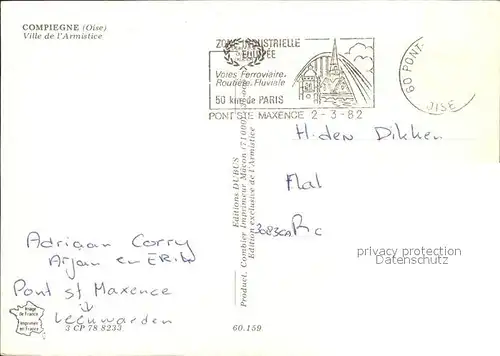 COMPIEGNE (Oise)
Ville de l'Armistice
ZONE INDUSTRIELLE
Voies Ferroviaire.
Routière. Fluviale
50 km de PARIS
PONT STE MAXENCE 2-3-82
60 PONT
OISE
H. den Dikken
Editions DUBUS
Product. Combier Imprimeur Mâcon
Edition exclusive de l'Armistice
privacy protection
Datenschutz
Adriaan Corry
Arjan en Erik
Pont st Maxence
Leeuwarden
Image
de France
Imprimée
en France
3 CP 78 8233
60.159